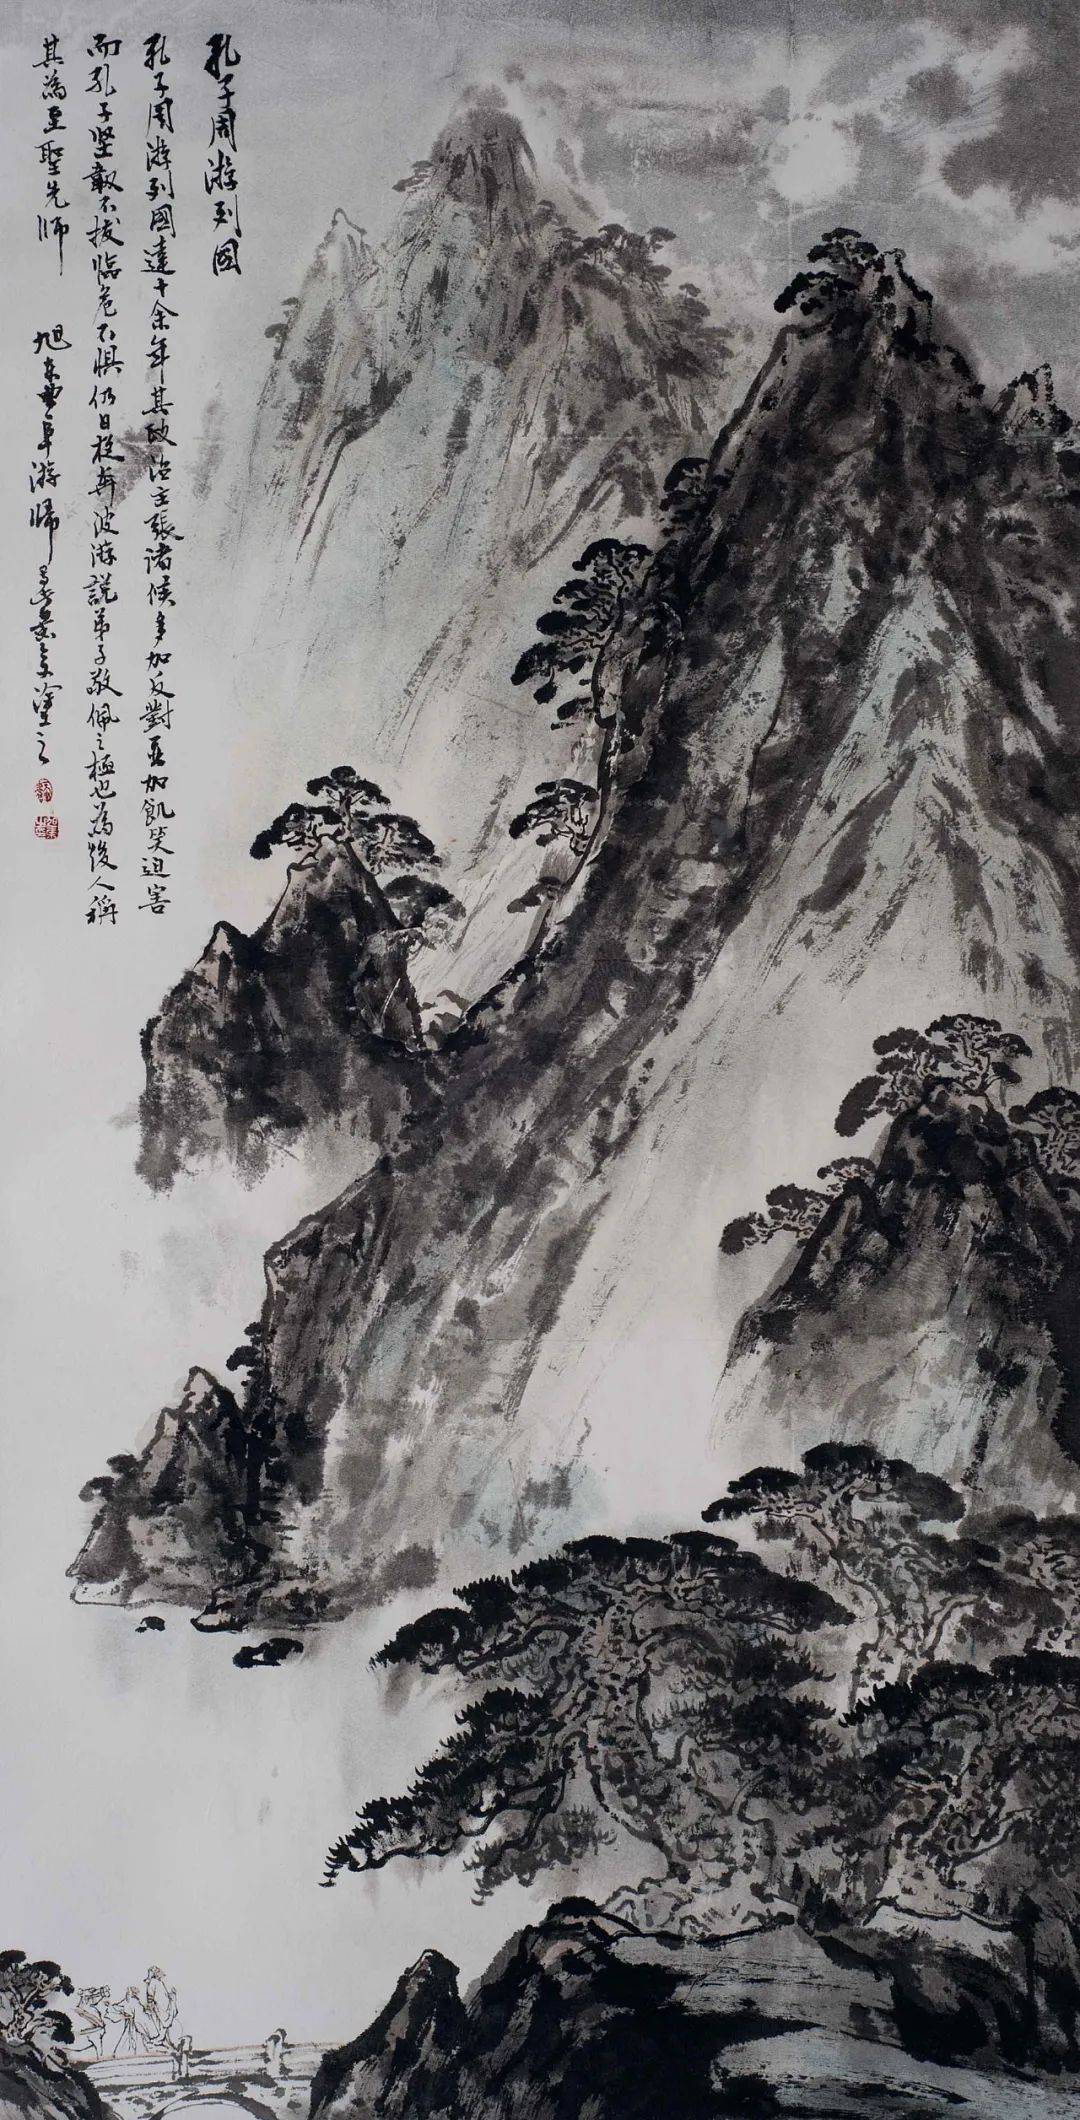 孔子周游列國
孔子周游列國達十余年其政治主張諸侯多加反對甚加飢笑迫害
而孔子坚韌不拔臨危不惧仍日夜奔波游説弟子敬佩之極也為後人稱
其為至聖先师
旭東曲阜游歸
塗之